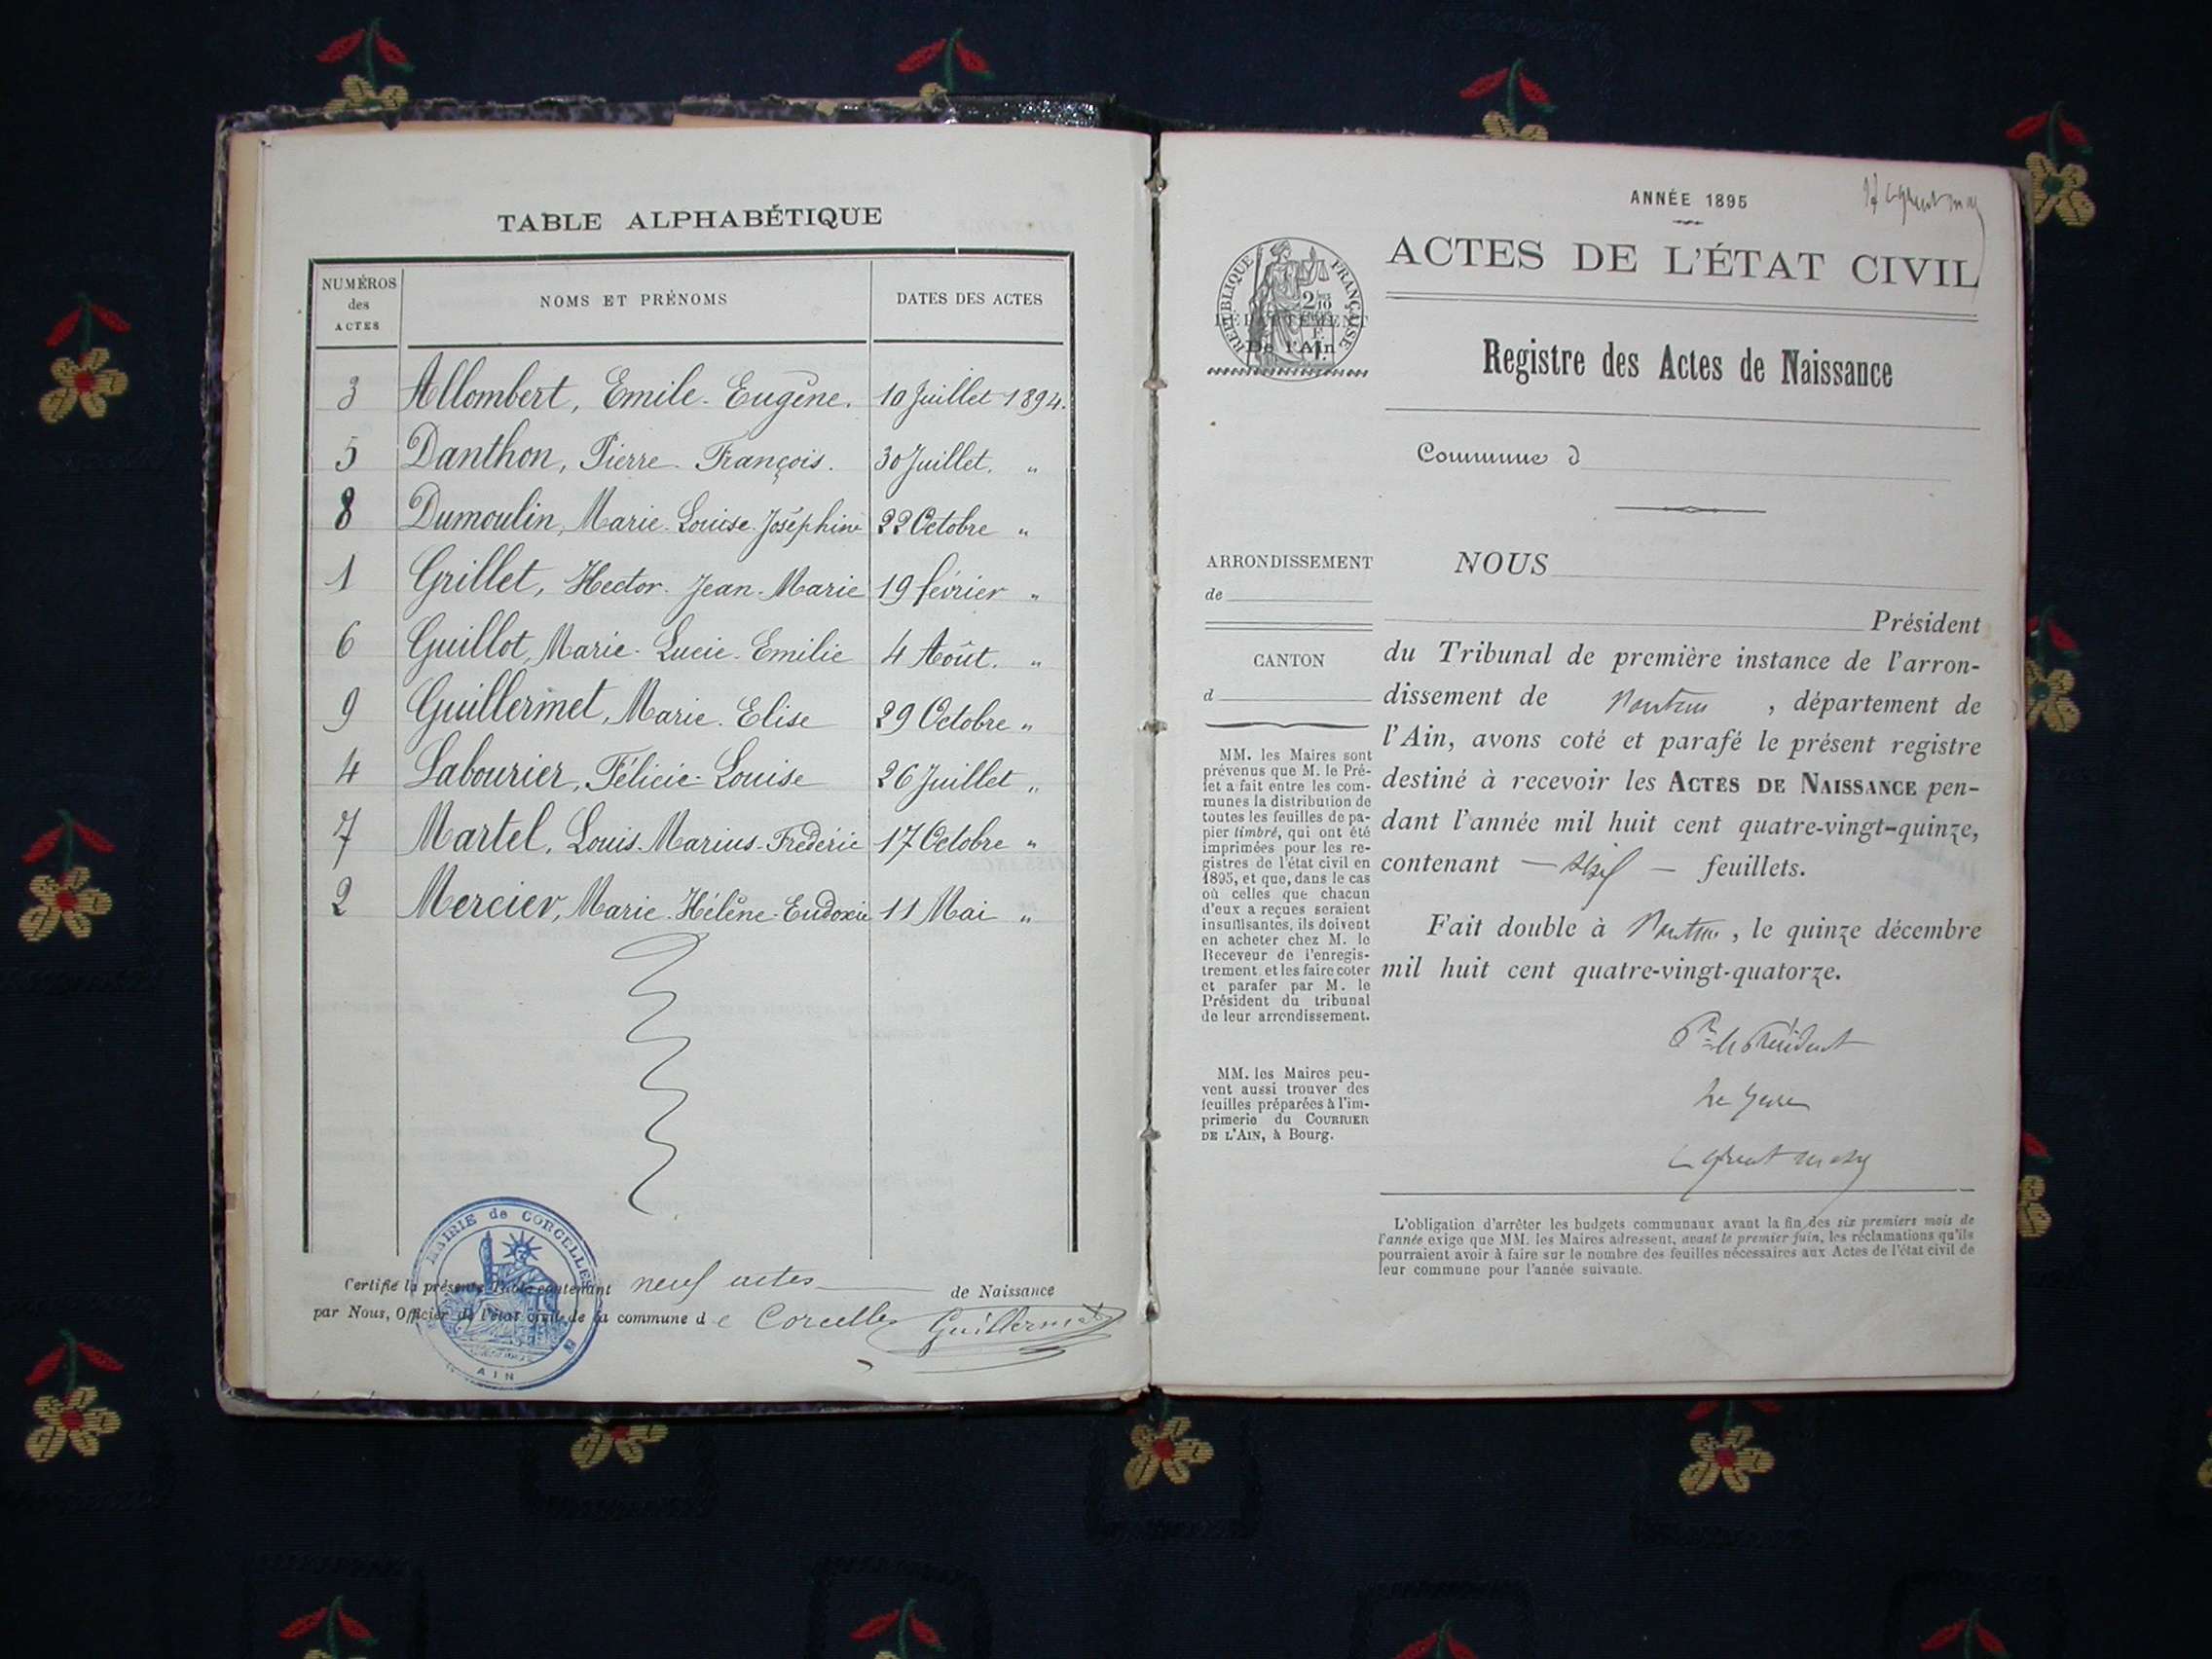 TABLE ALPHABÉTIQUE
NUMÉROS
des
ACTES
NOMS ET PRÉNOMS
DATES DES ACTES
3 Allombert, Emile-Eugène. 10 Juillet 1894.
5 Danthon, Pierre-François. 30 Juillet. "
8 Dumoulin, Marie-Louise-Joséphine 22 Octobre "
1 Grillet, Hector-Jean-Marie 19 février "
6 Guillot, Marie-Lucie-Emilie 4 Août. "
9 Guillermet, Marie-Elise 29 Octobre "
4 Labourier, Félicie-Louise 26 Juillet "
7 Martel, Louis-Marius-Frédéric 17 Octobre "
2 Mercier, Marie-Hélène-Eudoxie 11 Mai "
MAIRIE de CORCELLES
AIN
Certifié la présente Table contenant neuf actes de Naissance
par Nous, Officier de l'état civil de la commune de Corcelles Guillermet
ANNÉE 1895
ACTES DE L'ÉTAT CIVIL
RÉPUBLIQUE FRANÇAISE
DÉPARTEMENT
De l'Ain
Registre des Actes de Naissance
Commune d
ARRONDISSEMENT
de
CANTON
d
MM. les Maires sont
prévenus que M. le Pré-
fet a fait entre les com-
munes la distribution de
toutes les feuilles de pa-
pier timbré, qui ont été
imprimées pour les re-
gistres de l'état civil en
1895, et que, dans le cas
où celles que chacun
d'eux a reçues seraient
insuffisantes, ils doivent
en acheter chez M. le
Receveur de l'enregis-
trement et les faire coter
et parafer par M. le
Président du tribunal
de leur arrondissement.
MM. les Maires peu-
vent aussi trouver des
feuilles préparées à l'im-
primerie du COURRIER
DE L'AIN, à Bourg.
NOUS
Président
du Tribunal de première instance de l'arron-
dissement de Nantua, département de
l'Ain, avons coté et parafé le présent registre
destiné à recevoir les ACTES DE NAISSANCE pen-
dant l'année mil huit cent quatre-vingt-quinze,
contenant feuillets.
Fait double à Nantua, le quinze décembre
mil huit cent quatre-vingt-quatorze.
Pr le Président
Le Juge
L'obligation d'arrêter les budgets communaux avant la fin des six premiers mois de
l'année exige que MM. les Maires adressent, avant le premier juin, les réclamations qu'ils
pourraient avoir à faire sur le nombre des feuilles nécessaires aux Actes de l'état civil de
leur commune pour l'année suivante.